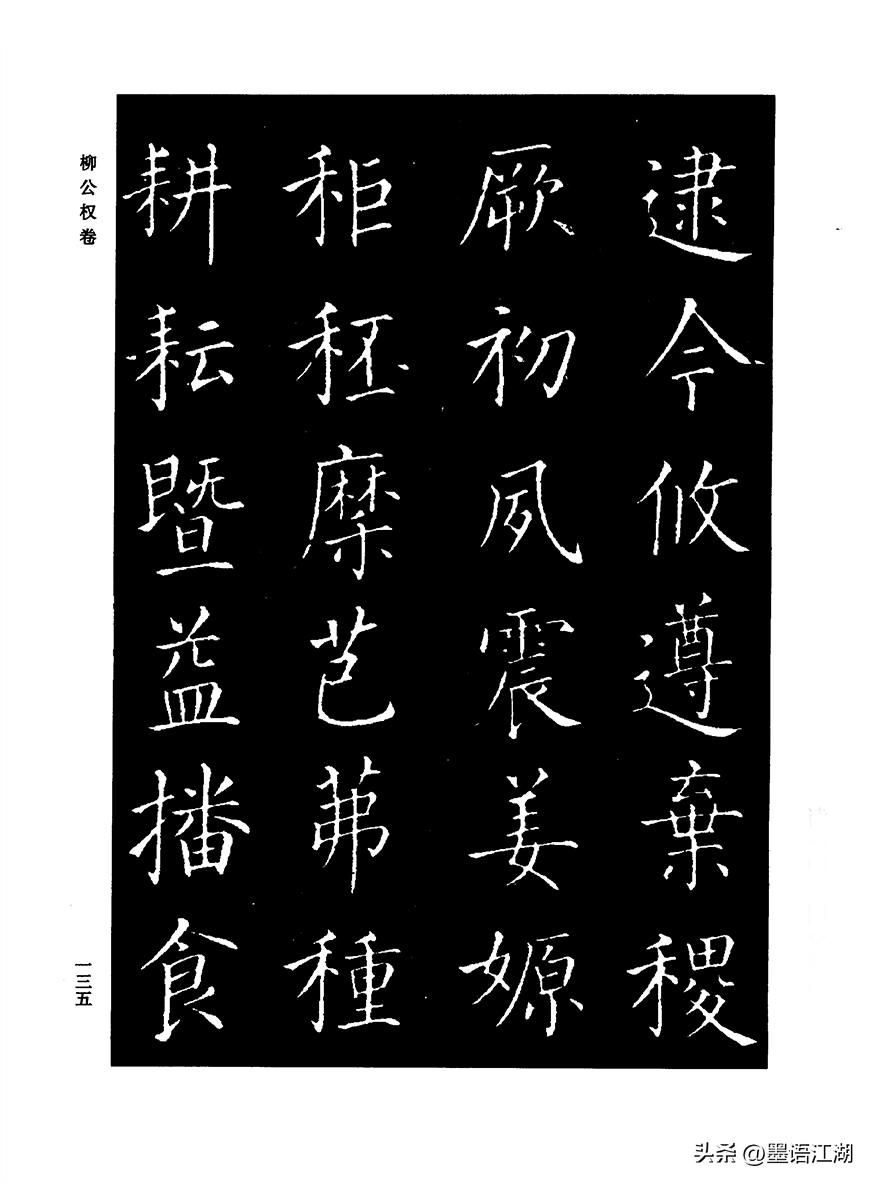 逮今攸遵棄稷
厥初夙震姜嫄
秬秠穈芑茀種
耕耘暨益播食
柳公权卷
一三五
头条 @墨语江湖